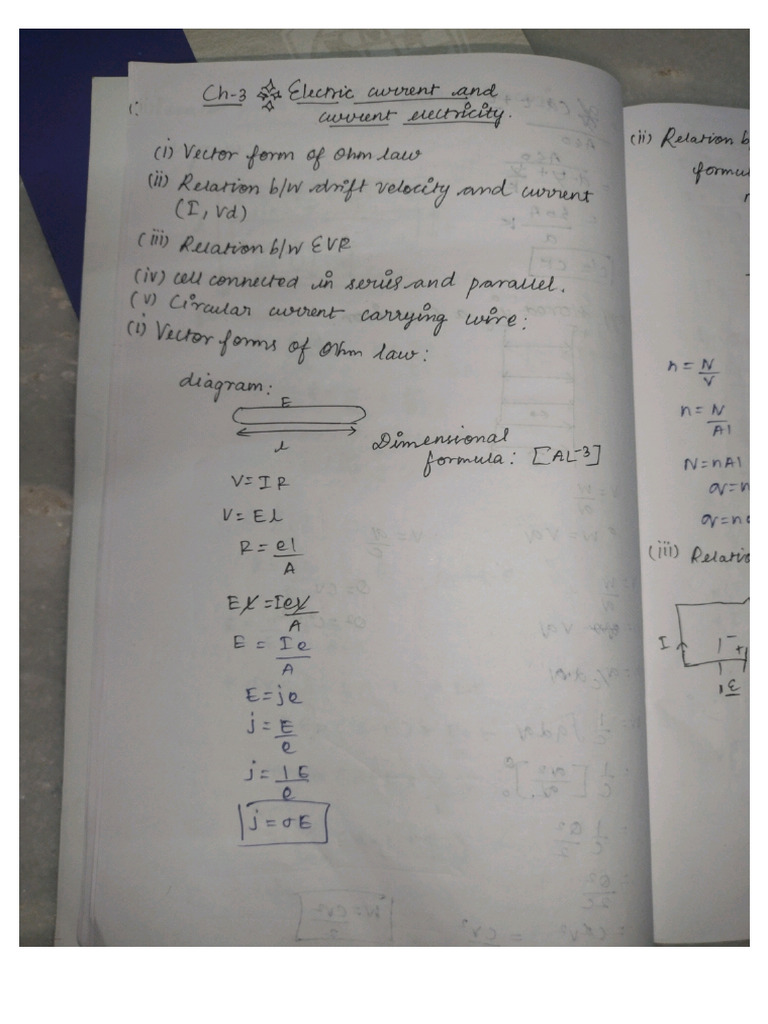 Ch-3 Electric current and
current electricity.
(i) Vector form of Ohm law
(ii) Relation b/w drift velocity and current
(I, Vd)
(iii) Relation b/w EVR
(iv) cell connected in series and parallel.
(v) Circular current carrying wire:
(i) Vector forms of Ohm law:
diagram:
E
l
Dimensional
formula: [AL-3]
V = IR
V = El
R = el/A
El = Iel/A
E = Ie/A
E = je
j = E/e
j = 1E/e
j = σE
(ii) Relation b
formu
n = N/V
n = N/Al
N = nAl
(iii) Relatio
I
- +